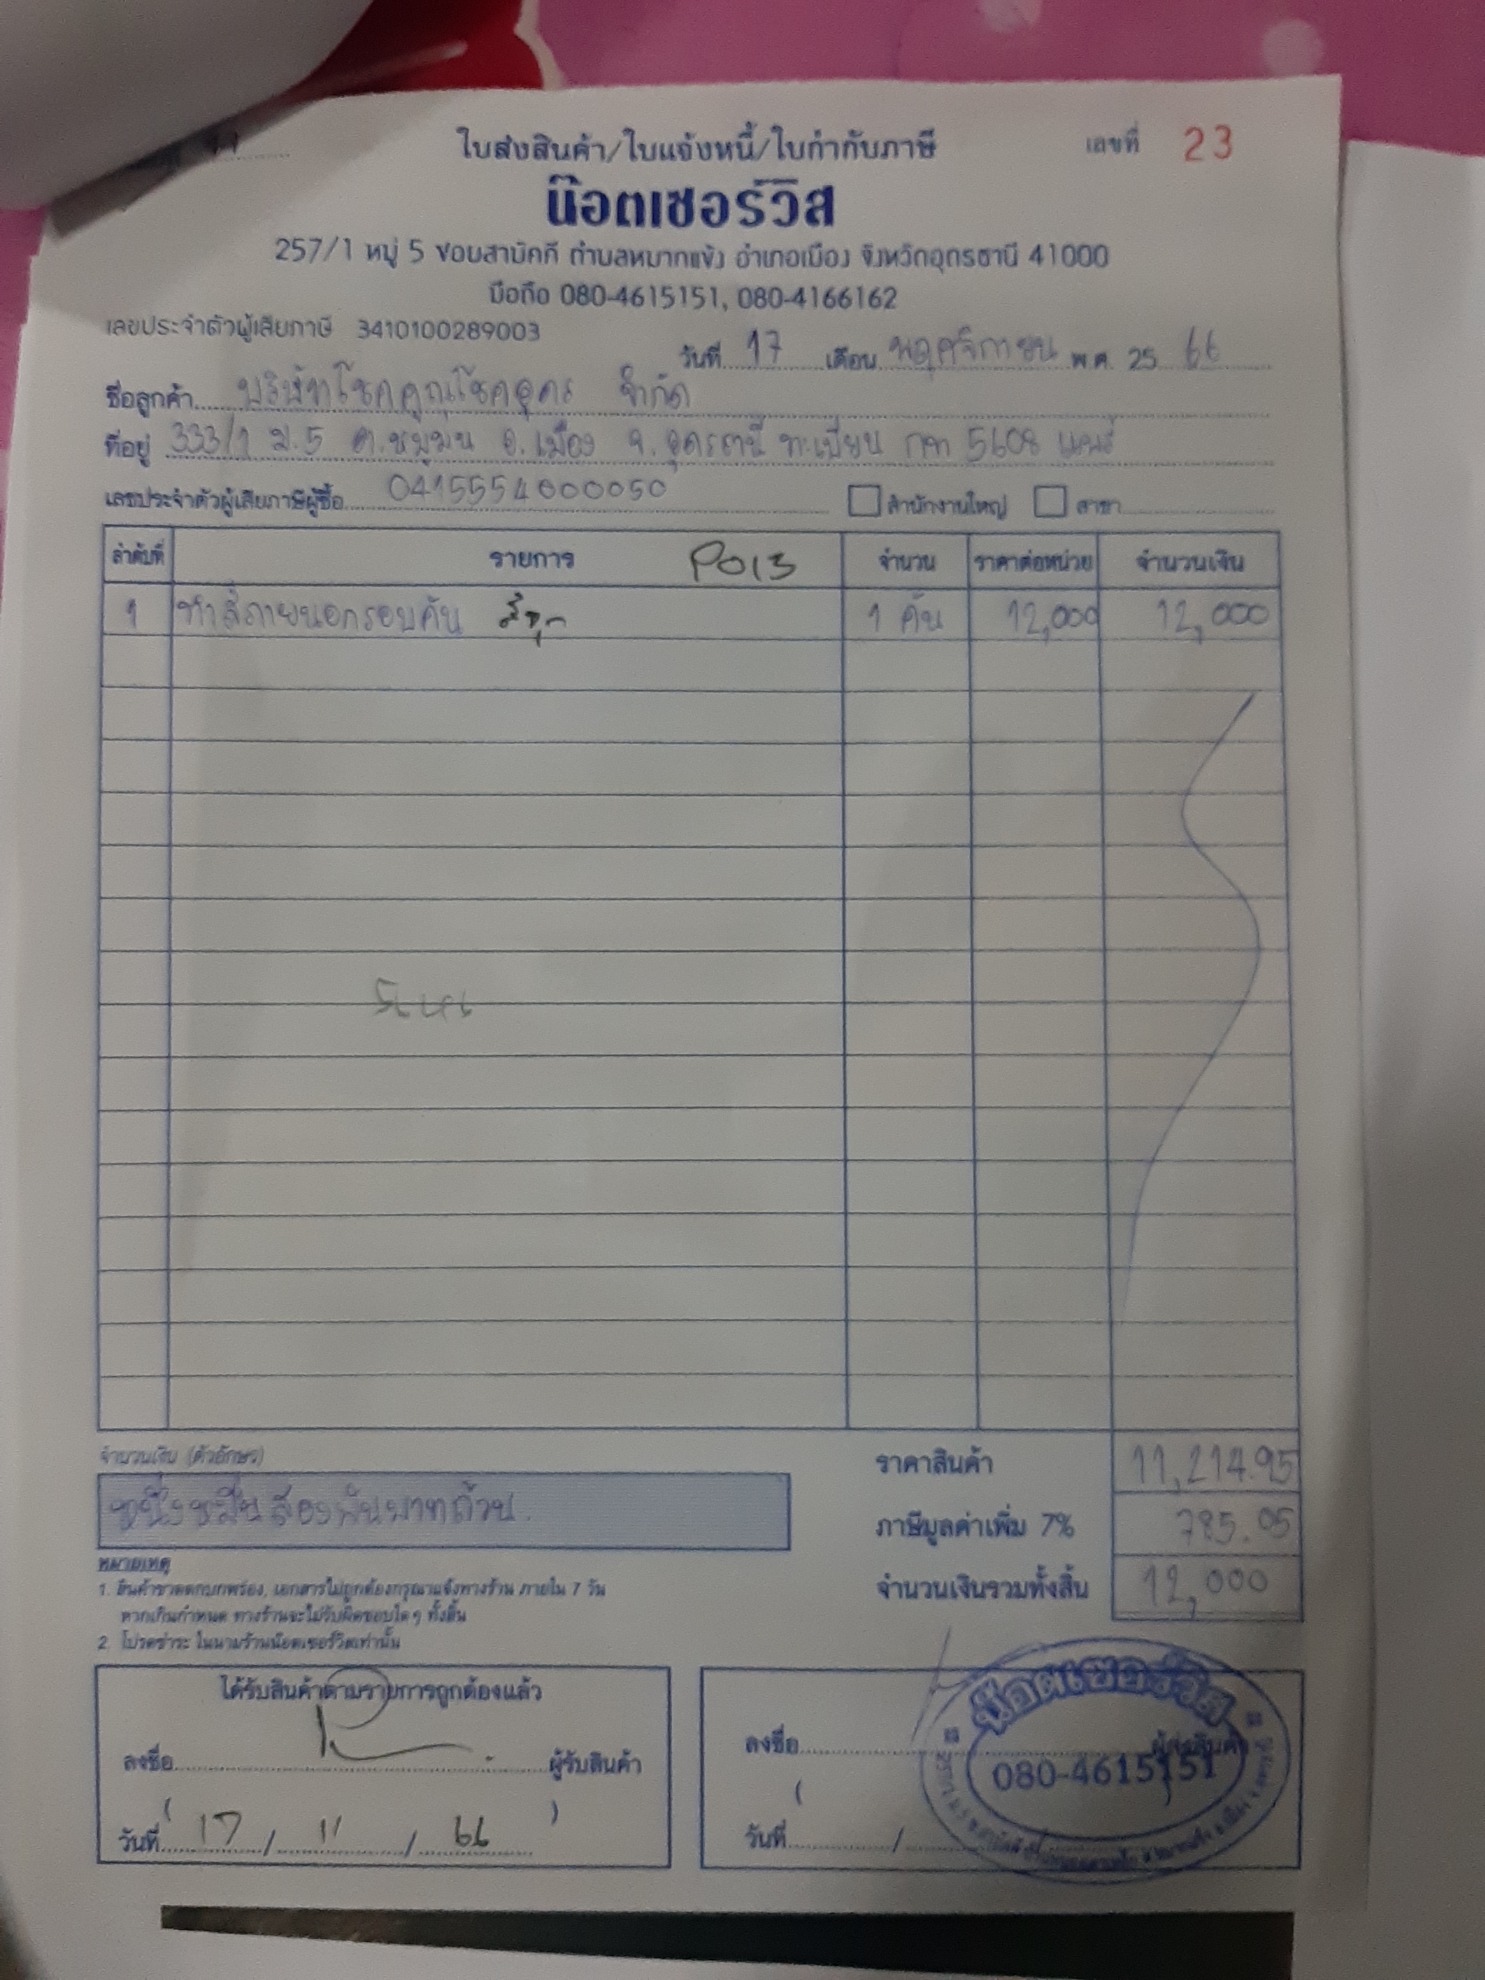 ใบส่งสินค้า/ใบแจ้งหนี้/ใบกำกับภาษี
เลขที่ 23
น๊อตเซอร์วิส
257/1 หมู่ 5 ซอยสามัคคี ตำบลหมากแข้ง อำเภอเมือง จังหวัดอุดรธานี 41000
มือถือ 080-4615151, 080-4166162
เลขประจำตัวผู้เสียภาษี 3410100289003
วันที่ 17 เดือน พฤศจิกายน พ.ศ. 25 66
ชื่อลูกค้า บริษัทโชคคูณโชคอุดร จำกัด
ที่อยู่ 333/1 ม.5 ต.หมูม่น อ.เมือง จ.อุดรธานี ทะเบียน กท 5608
เลขประจำตัวผู้เสียภาษีผู้ซื้อ 0415554000050 สำนักงานใหญ่ สาขา
ลำดับที่ รายการ PO13 จำนวน ราคาต่อหน่วย จำนวนเงิน
1 ทำสีภายนอกรอบคัน 1 คัน 12,000 12,000
จำนวนเงิน (ตัวอักษร)
หนึ่งหมื่นสองพันบาทถ้วน.
ราคาสินค้า 11,214.95
ภาษีมูลค่าเพิ่ม 7% 785.05
จำนวนเงินรวมทั้งสิ้น 12,000
หมายเหตุ
1. สินค้าขาดตกบกพร่อง, เอกสารไม่ถูกต้องกรุณาแจ้งทางร้าน ภายใน 7 วัน
หากเกินกำหนด ทางร้านจะไม่รับผิดชอบใดๆ ทั้งสิ้น
2. โปรดชำระ ในนามร้านน๊อตเซอร์วิสเท่านั้น
ได้รับสินค้าตามรายการถูกต้องแล้ว
ลงชื่อ ผู้รับสินค้า
( )
วันที่ 17 / 11 / 66
ลงชื่อ ผู้ส่งสินค้า
(
วันที่ /
น๊อตเซอร์วิส
080-4615151